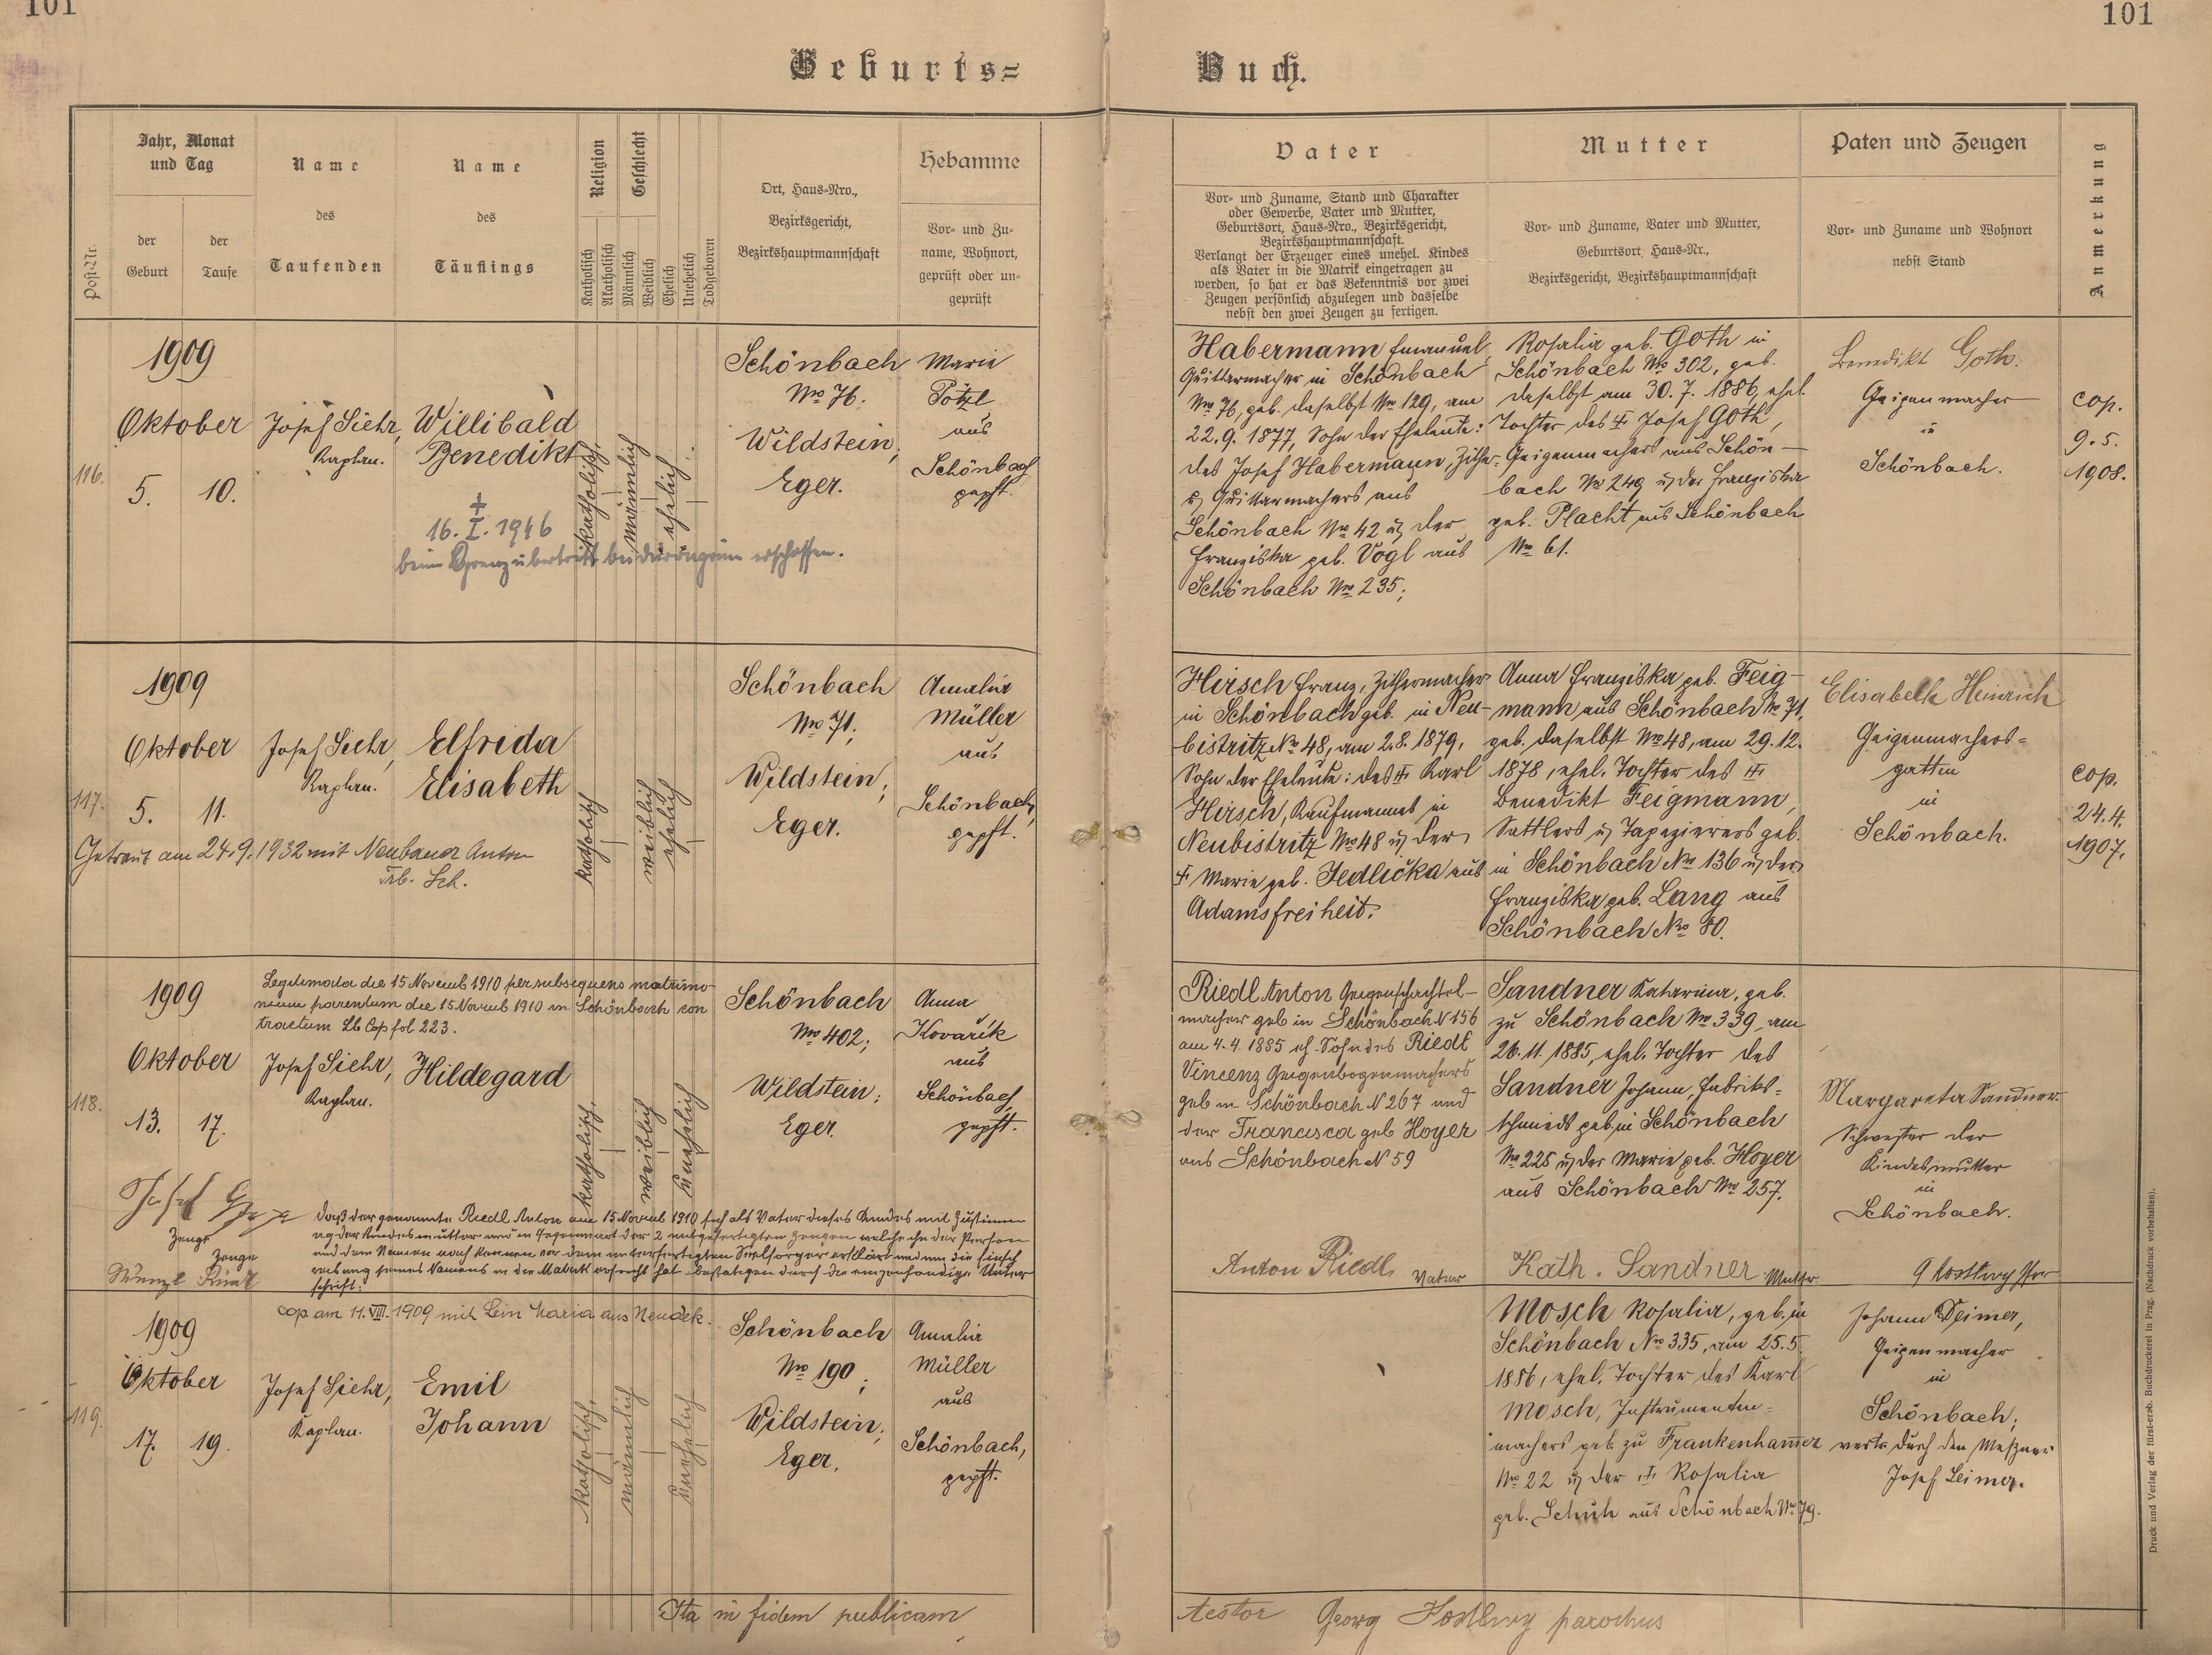 101
101
Geburts=
Buch.
Jahr, Monat
und Tag
der
Geburt
der
Taufe
Post-Nr.
Name
des
Taufenden
Name
des
Täuflings
Religion
Katholisch
Akatholisch
Geschlecht
Männlich
Weiblich
Ehelich
Unehelich
Todgeboren
Ort, Haus-Nro.,
Bezirksgericht,
Bezirkshauptmannschaft
Hebamme
Vor- und Zu-
name, Wohnort,
geprüft oder un-
geprüft
Vater
Vor- und Zuname, Stand und Charakter
oder Gewerbe, Vater und Mutter,
Geburtsort, Haus-Nro., Bezirksgericht,
Bezirkshauptmannschaft.
Verlangt der Erzeuger eines unehel. Kindes
als Vater in die Matrik eingetragen zu
werden, so hat er das Bekenntnis vor zwei
Zeugen persönlich abzulegen und dasselbe
nebst den zwei Zeugen zu fertigen.
Mutter
Vor- und Zuname, Vater und Mutter,
Geburtsort, Haus-Nr.,
Bezirksgericht, Bezirkshauptmannschaft
Paten und Zeugen
Vor- und Zuname und Wohnort
nebst Stand
Anmerkung
116.
1909
Oktober
5. 10.
Josef Siehr,
Kaplan.
Willibald
Benedikt
+
16. I. 1946
beim Grenzübertritt bei erschossen.
katholisch,
männlich
ehelich
Schönbach
Nro 76.
Wildstein,
Eger.
Marie
Pötzl
aus
Schönbach
gepft.
Habermann Emanuel,
Guitarmacher in Schönbach
Nro 76, geb. daselbst Nro 129, am
22. 9. 1877, Sohn der Eheleute:
des Josef Habermann, Zither-
u. Guitarmachers aus
Schönbach Nro 42 u. der
Franziska geb. Vogl aus
Schönbach Nro 235;
Rosalia geb. Goth in
Schönbach Nro 302, geb.
daselbst am 30. 7. 1886, ehel.
Tochter des † Josef Goth,
Geigenmachers aus Schön-
bach Nro 249 u. der Franziska
geb. Placht aus Schönbach
Nro 61.
Benedikt Goth.
Geigenmacher
in
Schönbach.
cop.
9. 5.
1908.
117.
1909
Oktober
5. 11.
Josef Siehr,
Kaplan.
Elfrida
Elisabeth
Getraut am 24. 9. 1932 mit Neubauer Anton
Trb. Sch.
katholisch
weiblich
ehelich
Schönbach
Nro 71,
Wildstein;
Eger.
Amalia
Müller
aus
Schönbach,
gepft.
Hirsch Franz, Zithermacher
in Schönbach geb. in Neu-
bistritz No 48, am 2. 8. 1879,
Sohn der Eheleute: des † Karl
Hirsch, Kaufmannes in
Neubistritz Nro 48 u. der
† Marie geb. Jedlička aus
Adamsfreiheit.
Anna Franziska geb. Feig-
mann aus Schönbach No 71,
geb. daselbst Nro 48, am 29. 12.
1878, ehel. Tochter des †
Benedikt Feigmann,
Sattlers u. Tapezierers geb.
in Schönbach Nro 136 u. der
Franziska geb. Lang aus
Schönbach Nro 80.
Elisabeth Heinrich
Geigenmachers=
gattin
in
Schönbach.
cop.
24. 4.
1907.
118.
1909
Legitimata die 15 Novemb 1910 per subsequens matrimo-
nium parentum die 15 Novemb 1910 in Schönbach con
tractum Lb Cop fol 223.
Oktober
13. 17.
Josef Siehr,
Kaplan.
Hildegard
katholisch,
weiblich
unehelich
Schönbach
Nro 402;
Wildstein;
Eger.
Anna
Kovarik
aus
Schönbach
gepft.
Riedl Anton Geigenschachtel-
macher geb in Schönbach N 156
am 4. 4. 1885 eh. Sohn des Riedl
Vincenz Geigenbogenmachers
geb in Schönbach N 267 und
der Francisca geb Hoyer
aus Schönbach N 59
Sandner Katarina, geb.
zu Schönbach Nro 339, am
26. 11. 1885, ehel. Tochter des
Sandner Johann, Fabriks-
schmied geb. in Schönbach
No 225 u. der Marie geb. Hoyer
aus Schönbach Nro 257.
Margareta Sandner
Schwester der
Kindesmutter
in
Schönbach.
Josef
Zeuge
Zeuge
Wenzl
Daß der genannte Riedl Anton am 15 Novemb 1910 sich als Vater dieses Kindes mit Zustimm
ng der Kindesmutter und in Gegenwart der 2 mitgefertigten Zeugen welche ihn der Person
und dem Namen nach kennen vor dem unterfertigten Seelsorger erklärt und um die Einsch
reibung seines Namens in die Matrik ersucht hat bestätigen durch die eigenhändige Unter
schrift:
Anton Riedl Vater
Kath. Sandner Mutter
119.
cop am 11. VIII. 1909 mit Lein Maria aus Neudek.
1909
Oktober
17. 19.
Josef Siehr,
Kaplan.
Emil
Johann
katholisch,
männlich
unehelich
Schönbach
Nro 190;
Wildstein;
Eger.
Amalia
Müller
aus
Schönbach,
gepft.
Mosch Rosalia, geb. in
Schönbach Nro 335, am 25. 5.
1886, ehel. Tochter des Karl
Mosch, Instrumenten-
machers geb. zu Frankenhammer
No 22 u. der † Rosalia
geb. Schuh aus Schönbach Nro 79.
Johann Deimer,
Geigenmacher
in
Schönbach;
vertr. durch den Meßner
Josef Leimer.
Ita in fidem publicam
testor Georg Hostlivy parochus
Druck und Verlag der fürst-erzb. Buchdruckerei in Prag. (Nachdruck vorbehalten).